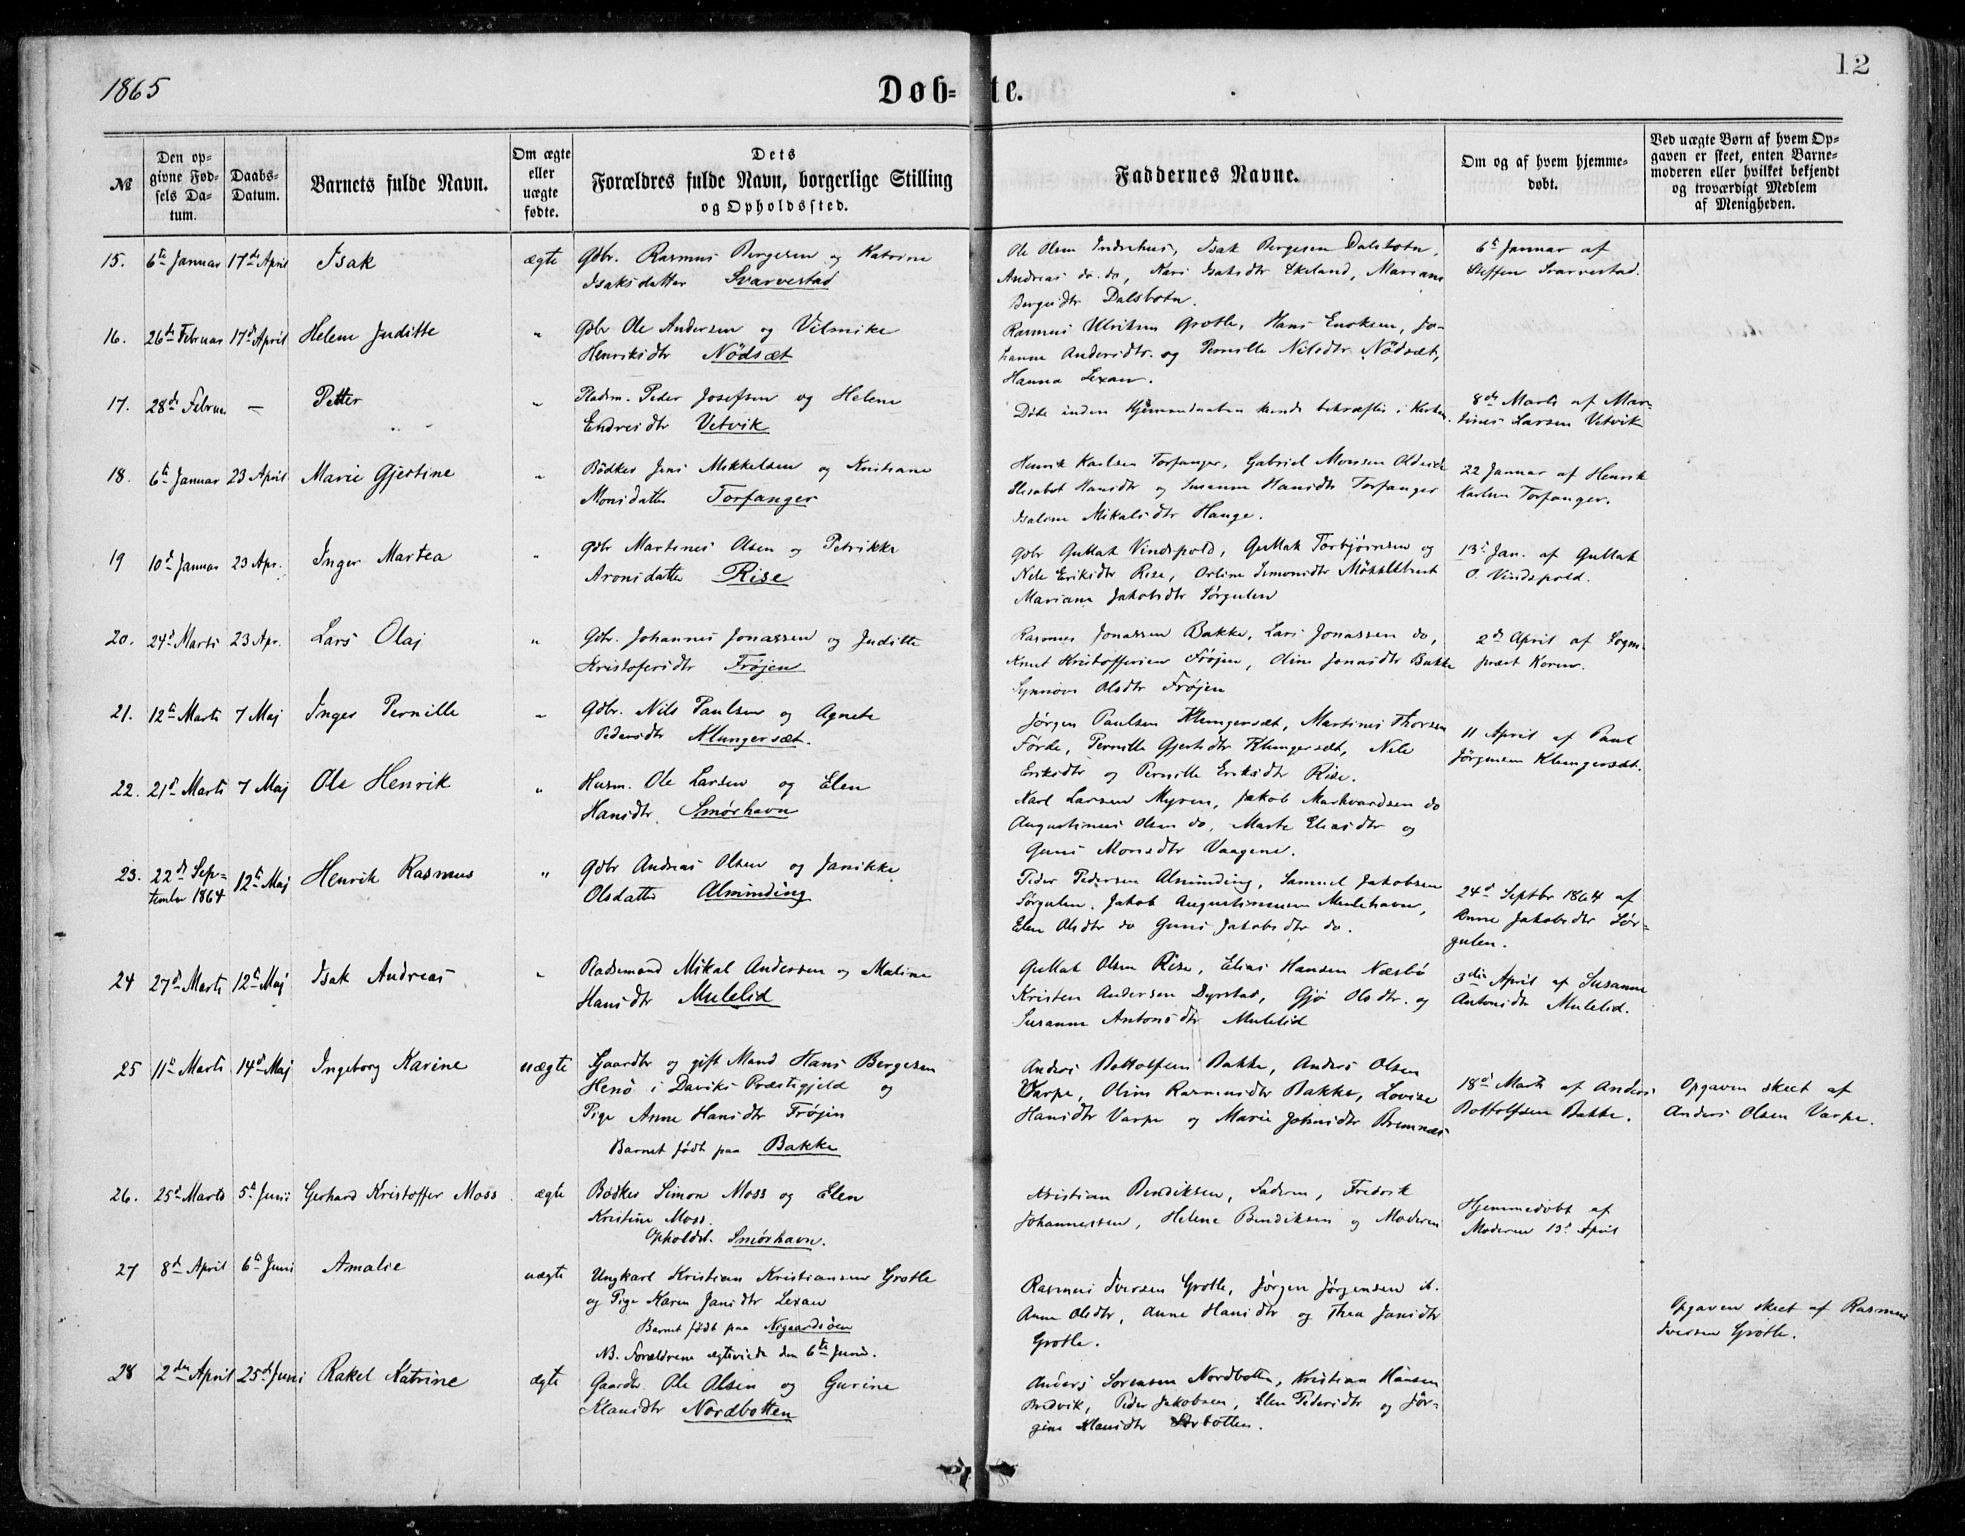 1865
Døb-
te.
12
№
Den op-
givne Fød-
sels Da-
tum.
Daabs-
Datum.
Barnets fulde Navn.
Om ægte
eller
uægte
fødte.
Dets
Forældres fulde Navn, borgerlige Stilling
og Opholdssted.
Faddernes Navne.
Om og af hvem hjemme-
døbt.
Ved uægte Børn af hvem Op-
gaven er skeet, enten Barne-
moderen eller hvilket bekjendt
og troværdigt Medlem
af Menigheden.
15. 6te Januar 17de April Isak ægte Gdbr. Rasmus Bergesen og Katrine
Isaksdatter Svarvestad
Ole Olsen Indrehus, Isak Bergesen Dalsbotn,
Andreas do. do, Kari Isaksdtr Ekeland, Mariane
Bergesdtr Dalsbotn.
6te Januar af
Steffen Svarvestad.
16. 26de Februar 17de April Helene Juditte " Gdbr Ole Andersen og Vilmike
Henriksdtr Nødsæt
Rasmus Ulriksen Grotle, Hans Enoksen, Jo-
hanne Andersdtr. og Pernille Nilsdtr Nødsæt,
Hanna Lexau.
17. 28de Februar — Petter " Pladsm. Peder Josefsen og Helene
Endresdtr Vetvik
Døde inden Hjemmedaaben kunde bekræftes i Kirken.
8de Marts af Mar-
tines Larsen Vetvik
18. 6te Januar 23 April Marie Gjertine " Bødker Jens Mikkelsen og Kristiane
Monsdatter Torfanger
Henrik Karlsen Torfanger, Gabriel Monsen Oldeide
Elisabet Hansdtr og Susanne Hansdtr Torfanger
Isaline Mikalsdtr Hauge.
22 Januar af Henrik
Karlsen Torfanger.
19 10de Januar 23 Apr. Inger Martea " Gdbr Martines Olsen og Petrikke
Aronsdatter Rise
Gdbr Gullak Vindspold, Gullak Torbjørnsen og
Nele Eriksdtr Rise, Orline Simonsdtr
Mariane Jakobsdtr Sørgulen
13de Jan. af Gullak
O. Vindspold.
20. 24de Marts 23 Apr. Lars Olaj " Gdbr. Johannes Jonassen og Juditte
Kristofersdtr Frøjen
Rasmus Jonassen Bakke, Lars Jonassen do,
Knut Kristoffersen Frøjen, Oline Jonasdtr Bakke
Synnøve Olsdtr Frøjen
2den April af Sogne-
præst Koren.
21. 12te Marts 7 Maj Inger Pernille " Gdbr. Nils Paulsen og Agnete
Pedersdtr Klungersæt.
Jørgen Paulsen Klungersæt, Martines Thorsen
Førde, Pernille Gjertsdtr Klungersæt, Nele
Eriksdtr og Pernille Eriksdtr Rise.
11 April af Paul
Jørgensen Klungersæt.
22. 21de Marts 7 Maj Ole Henrik " Husm. Ole Larsen og Elen
Hansdtr Smørhavn
Karl Larsen Myren, Jakob Markvardsen do
Augustinus Olsen do, Marte Eliasdtr og
Guni Monsdtr Vaagene.
23. 22de Sep-
tember 1864 12te Maj Henrik Rasmus " Gdbr Andreas Olsen og Janikke
Olsdatter Alminding
Peder Pedersen Alminding, Samuel Jakobsen
Sørgulen. Jakob Augustinussen Mulehavn,
Elen Olsdtr do Guni Jakobsdtr do.
24de Septbr 1864 af
Anne Jakobsdtr Sør-
gulen.
24 27de Marts 12te Maj Isak Andreas " Pladsmand Mikal Andersen og Maline
Hansdtr Mulelid
Gullak Olsen Rise, Elias Hansen Næsbø
Kristen Andersen Dyrstad, Gjø Olsdtr. og
Susanne Antonsdtr Mulelid
3die April af Susanne
Antonsdtr Mulelid.
25 11te Marts 14de Maj Ingeborg Karine uægte Gaardbr og gift Mand Hans Bergesen
Henø i Daviks Præstegjeld og
Pige Anne Hansdtr Frøjen
Barnet født paa Bakke
Anders Bottolfsen Bakke, Anders Olsen
Varpe, Oline Rasmusdtr Bakke, Lovise
Hansdtr Varpe og Marie Johnsdtr Bremnæs
18de Marts af Anders
Bottolfsen Bakke.
Opgaven skeet af
Anders Olsen Varpe.
26. 25de Marts 5te Juni Gerhard Kristoffer Moss ægte Bødker Simon Moss og Elen
Kristine Moss.
Opholdst. Smørhavn.
Kristian Bendiksen, Faderen, Fredrik
Johannessen, Helene Bendiksen og Moderen
Hjemmedøbt af
Moderen 13de April
27 8de April 6te Juni Amalie uægte Ungkarl Kristian Kristiansen Grotle
og Pige Karen Jansdtr Lexau
Barnet født paa Nygaardsøen
NB. Forældrene ægteviede den 6te Juni.
Rasmus Iversen Grotle, Jørgen Jørgensen ib.
Anne Olsdtr, Anne Hansdtr og Thea Jansdtr
Grotle.
Opgaven skeet af Rasmus
Iversen Grotle.
28 2den April 25de Juni Rakel Katrine ægte Gaardbr. Ole Olsen og Gurine
Klausdtr Nordbotten
Anders Sørensen Nordbotten, Kristian Hansen
Bredvik, Peder Jakobsen, Elen Pedersdtr og Jør-
gine Klausdtr Sørbotten.